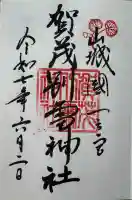 山城國一之宮
賀茂別雷神社
令和七年六月二日